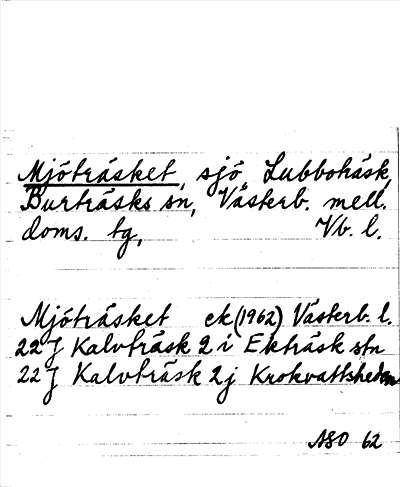 Mjöträsket, sjö, Lubboträsk,
Burträsks sn, Västerb. mell.
doms. tg, Vb. l.
Mjöträsket ek (1962) Västerb. l.
22 J Kalvträsk 2 i Ekträsk stn
22 J Kalvträsk 2 j Krokvattsheden
ASO 62